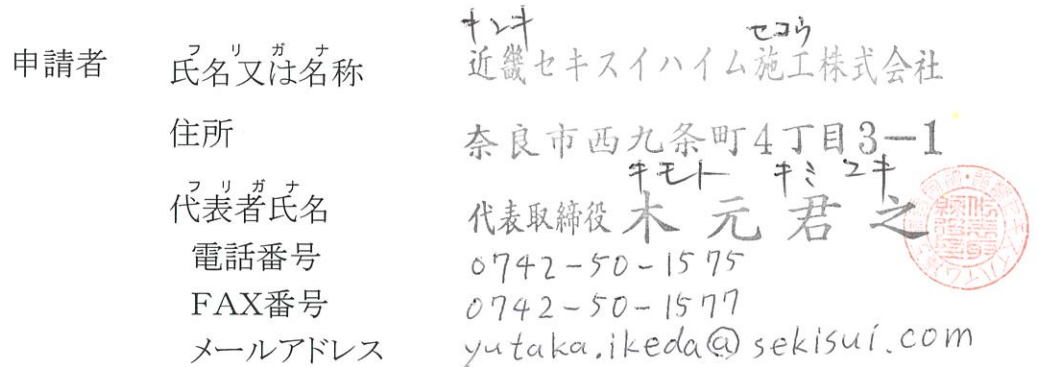 キンキ セコウ
フリガナ
申請者 氏名又は名称 近畿セキスイハイム施工株式会社
住所 奈良市西九条町4丁目3-1
フリガナ キモト キミユキ
代表者氏名 代表取締役 木元君之
電話番号 0742-50-1575
FAX番号 0742-50-1577
メールアドレス yutaka.ikeda@sekisui.com